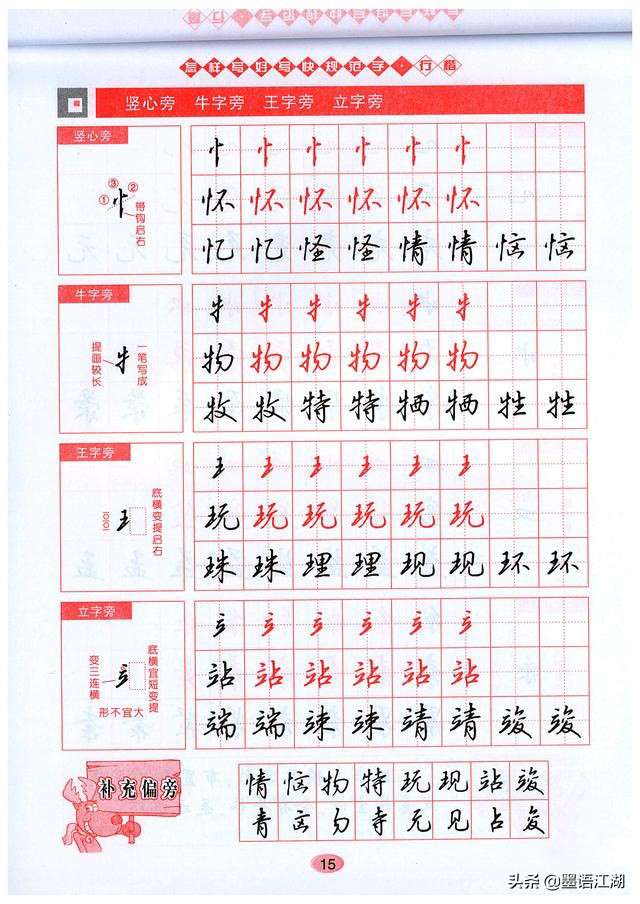 怎样写好写快规范字·行楷
竖心旁 牛字旁 王字旁 立字旁
竖心旁
③
① ②
带钩启右
忄 忄 忄 忄 忄 忄
怀 怀 怀 怀 怀 怀
忆 忆 怪 怪 情 情 恼 恼
牛字旁
提画较长
一笔写成
牜 牜 牜 牜 牜 牜
物 物 物 物 物 物
牧 牧 特 特 牺 牺 牲 牲
王字旁
底横变提启右
王 王 王 王 王 王
玩 玩 玩 玩 玩 玩
珠 珠 理 理 现 现 环 环
立字旁
变三连横
底横宜短变提
形不宜大
立 立 立 立 立 立
站 站 站 站 站 站
端 端 竦 竦 靖 靖 竣 竣
补充偏旁
情 恼 物 特 玩 现 站 竣
青 㐫 勿 寺 元 见 占 夋
15
头条@墨语江湖